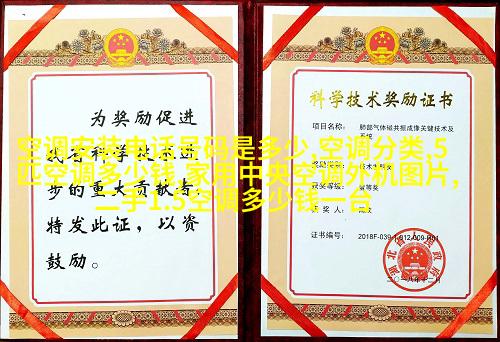 为奖励促进
我省科学技术进
步的重大贡献者，
特发此证，以资
鼓励。
科学技术奖励证书
项目名称： 肺部气体磁共振成像关键技术及
系统
奖励类别： 技术发明奖
获奖等级： 等奖
获 奖 人：
证书编号： 2018F-039-1-012-009-R01
湖北省人民政府
二〇一八年十二月
空调安装电话号码是多少,空调分类,5
匹空调多少钱,家用中央空调外机图片,
二手1.5空调多少钱一台